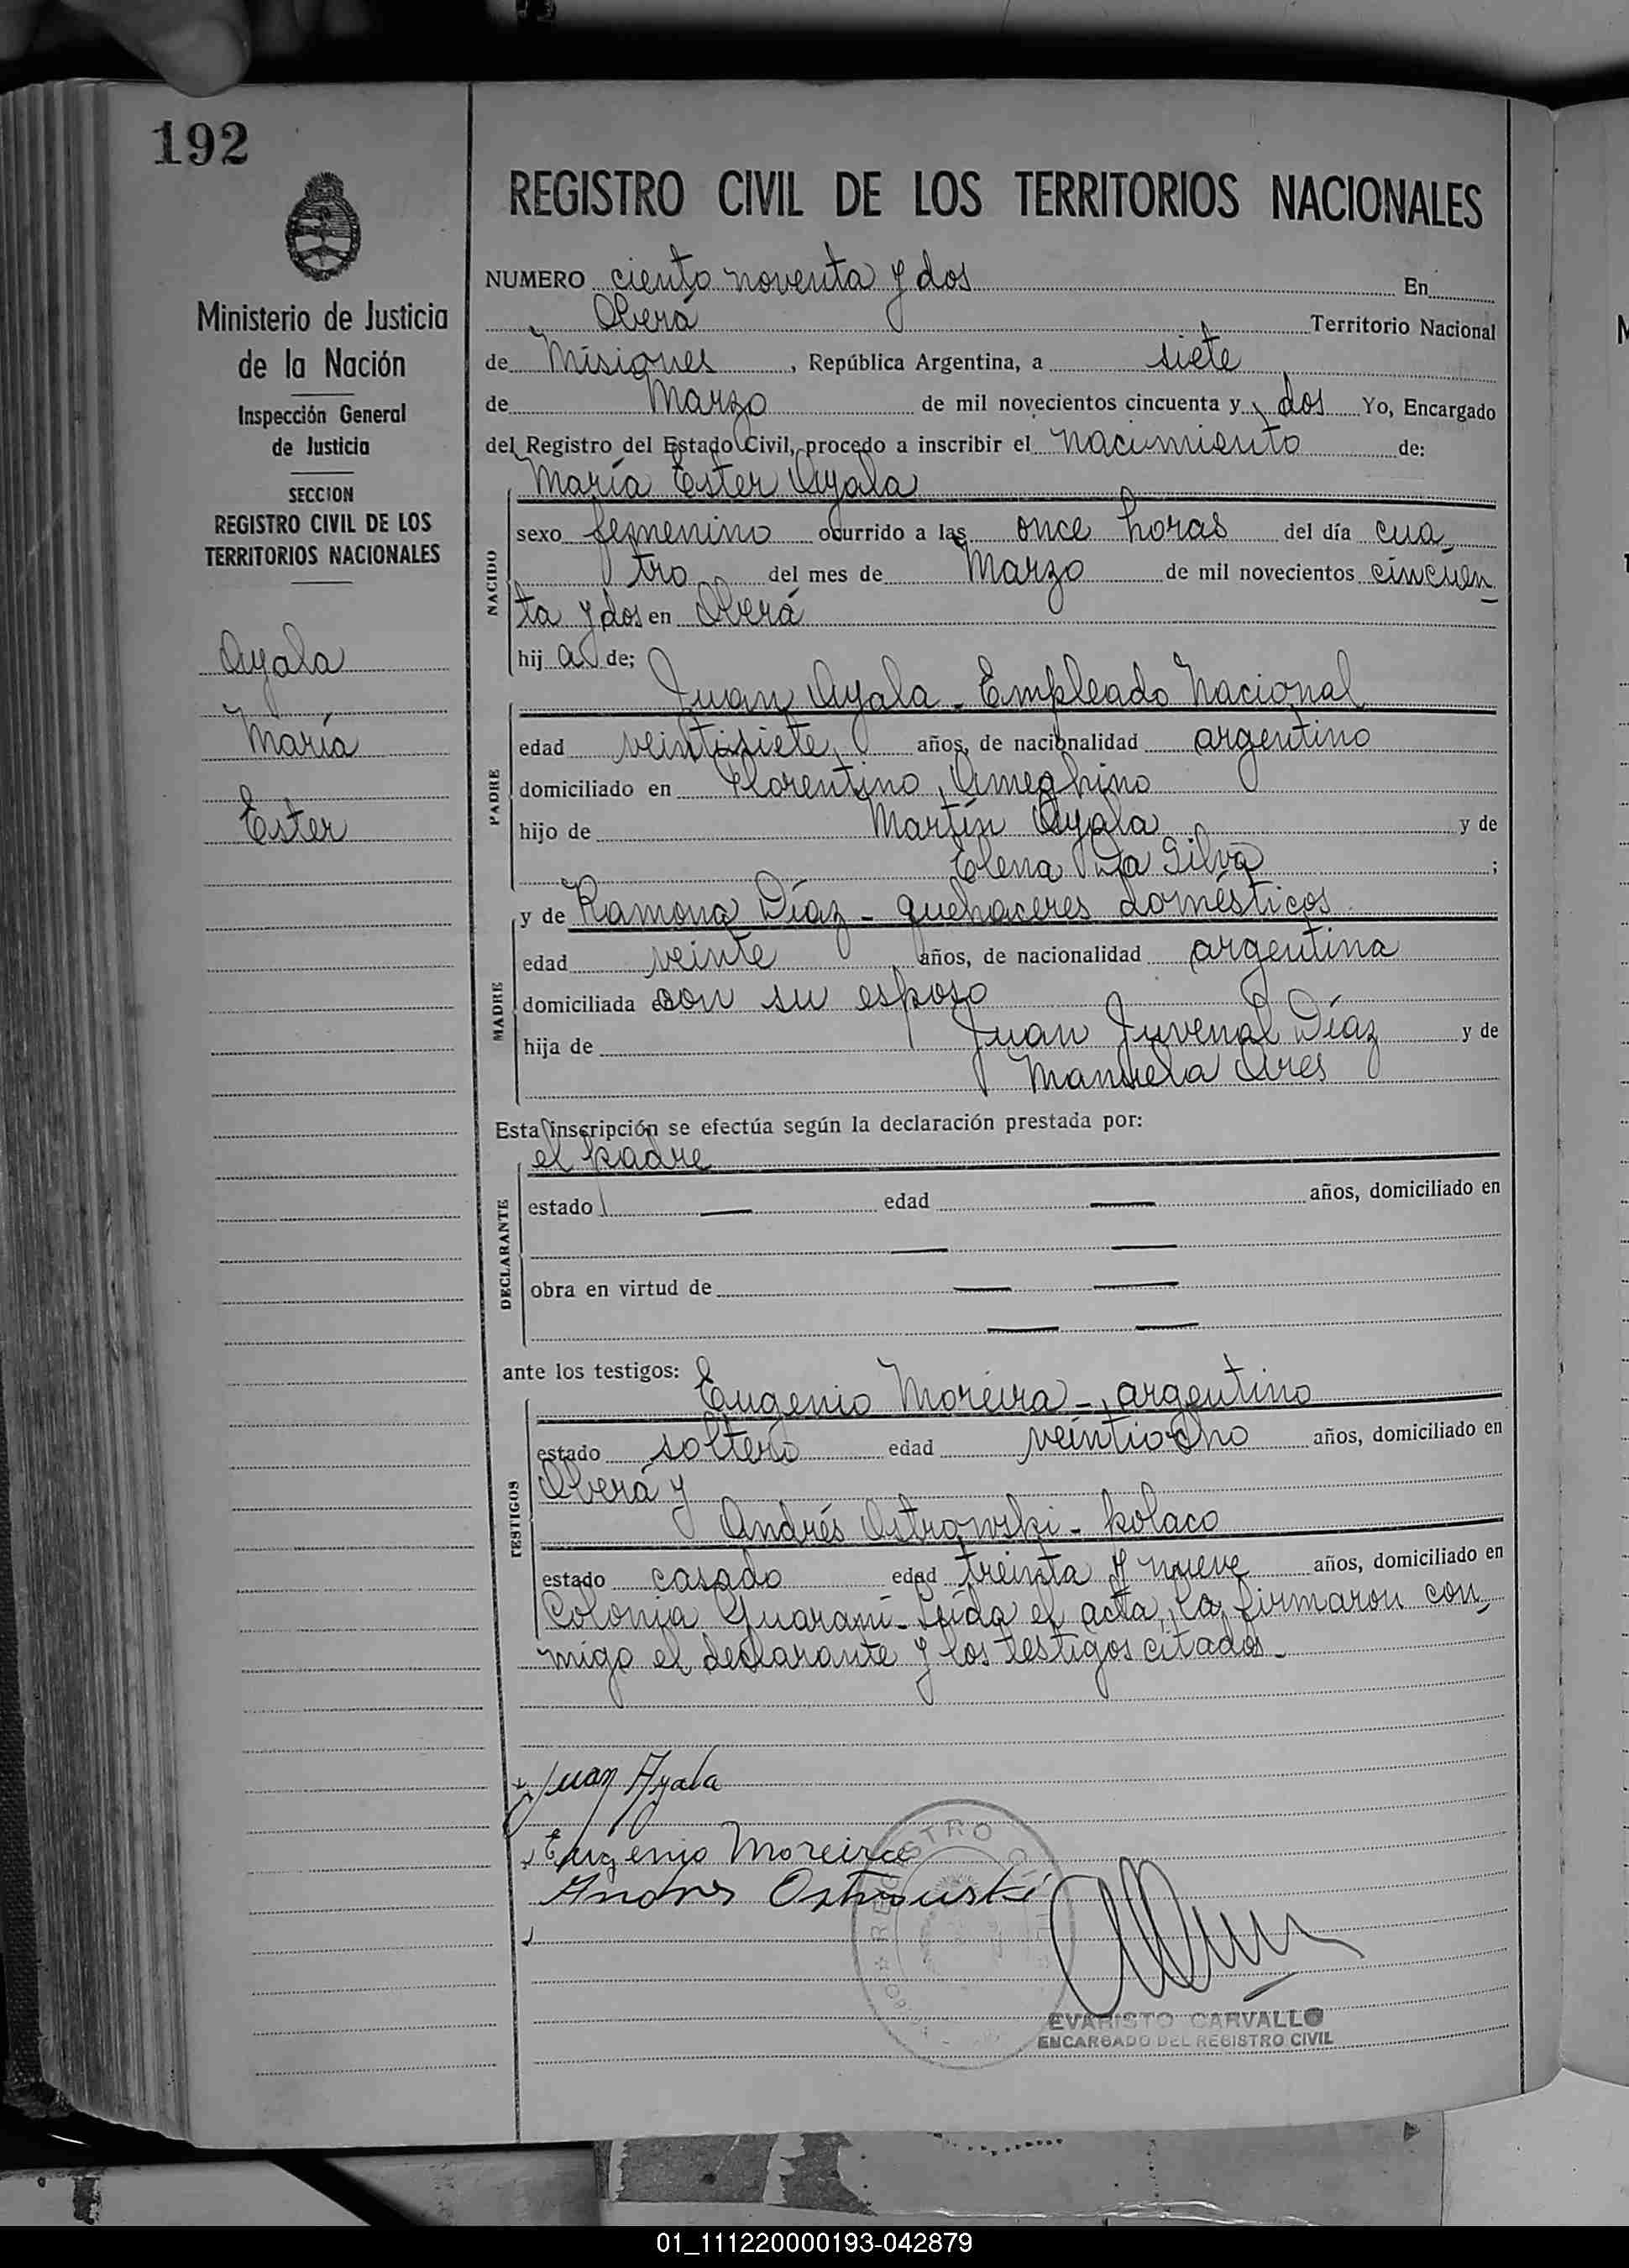 192
Ministerio de Justicia
de la Nación
Inspección General
de Justicia
SECCION
REGISTRO CIVIL DE LOS
TERRITORIOS NACIONALES
Ayala
María
Ester
REGISTRO CIVIL DE LOS TERRITORIOS NACIONALES
NUMERO ciento noventa y dos En
Oberá Territorio Nacional
de Misiones, República Argentina, a siete
de Marzo de mil novecientos cincuenta y dos Yo, Encargado
del Registro del Estado Civil, procedo a inscribir el nacimiento de:
María Ester Ayala
NACIDO
sexo femenino ocurrido a las once horas del día cua-
tro del mes de Marzo de mil novecientos cincuen-
ta y dos en Oberá
hija de;
Juan Ayala - Empleado Nacional
PADRE
edad veintisiete años, de nacionalidad argentino
domiciliado en Florentino Ameghino
hijo de Martín Ayala y de
Elena Da Silva ;
y de Ramona Díaz - quehaceres domésticos
MADRE
edad veinte años, de nacionalidad argentina
domiciliada con su esposo
hija de Juan Juvenal Díaz y de
Manuela Ares
Esta inscripción se efectúa según la declaración prestada por:
el padre
DECLARANTE
estado — edad — años, domiciliado en
— —
obra en virtud de — —
— —
ante los testigos:
Eugenio Moreira - argentino
TESTIGOS
estado soltero edad veintiocho años, domiciliado en
Oberá y
Andrés Ostrowski - polaco
estado casado edad treinta y nueve años, domiciliado en
Colonia Guaraní - Leída el acta, la firmaron con-
migo el declarante y los testigos citados -
Juan Ayala
Eugenio Moreira
Andres Ostrouski
REGISTRO CIVIL
EVARISTO CARVALLO
ENCARGADO DEL REGISTRO CIVIL
01_111220000193-042879